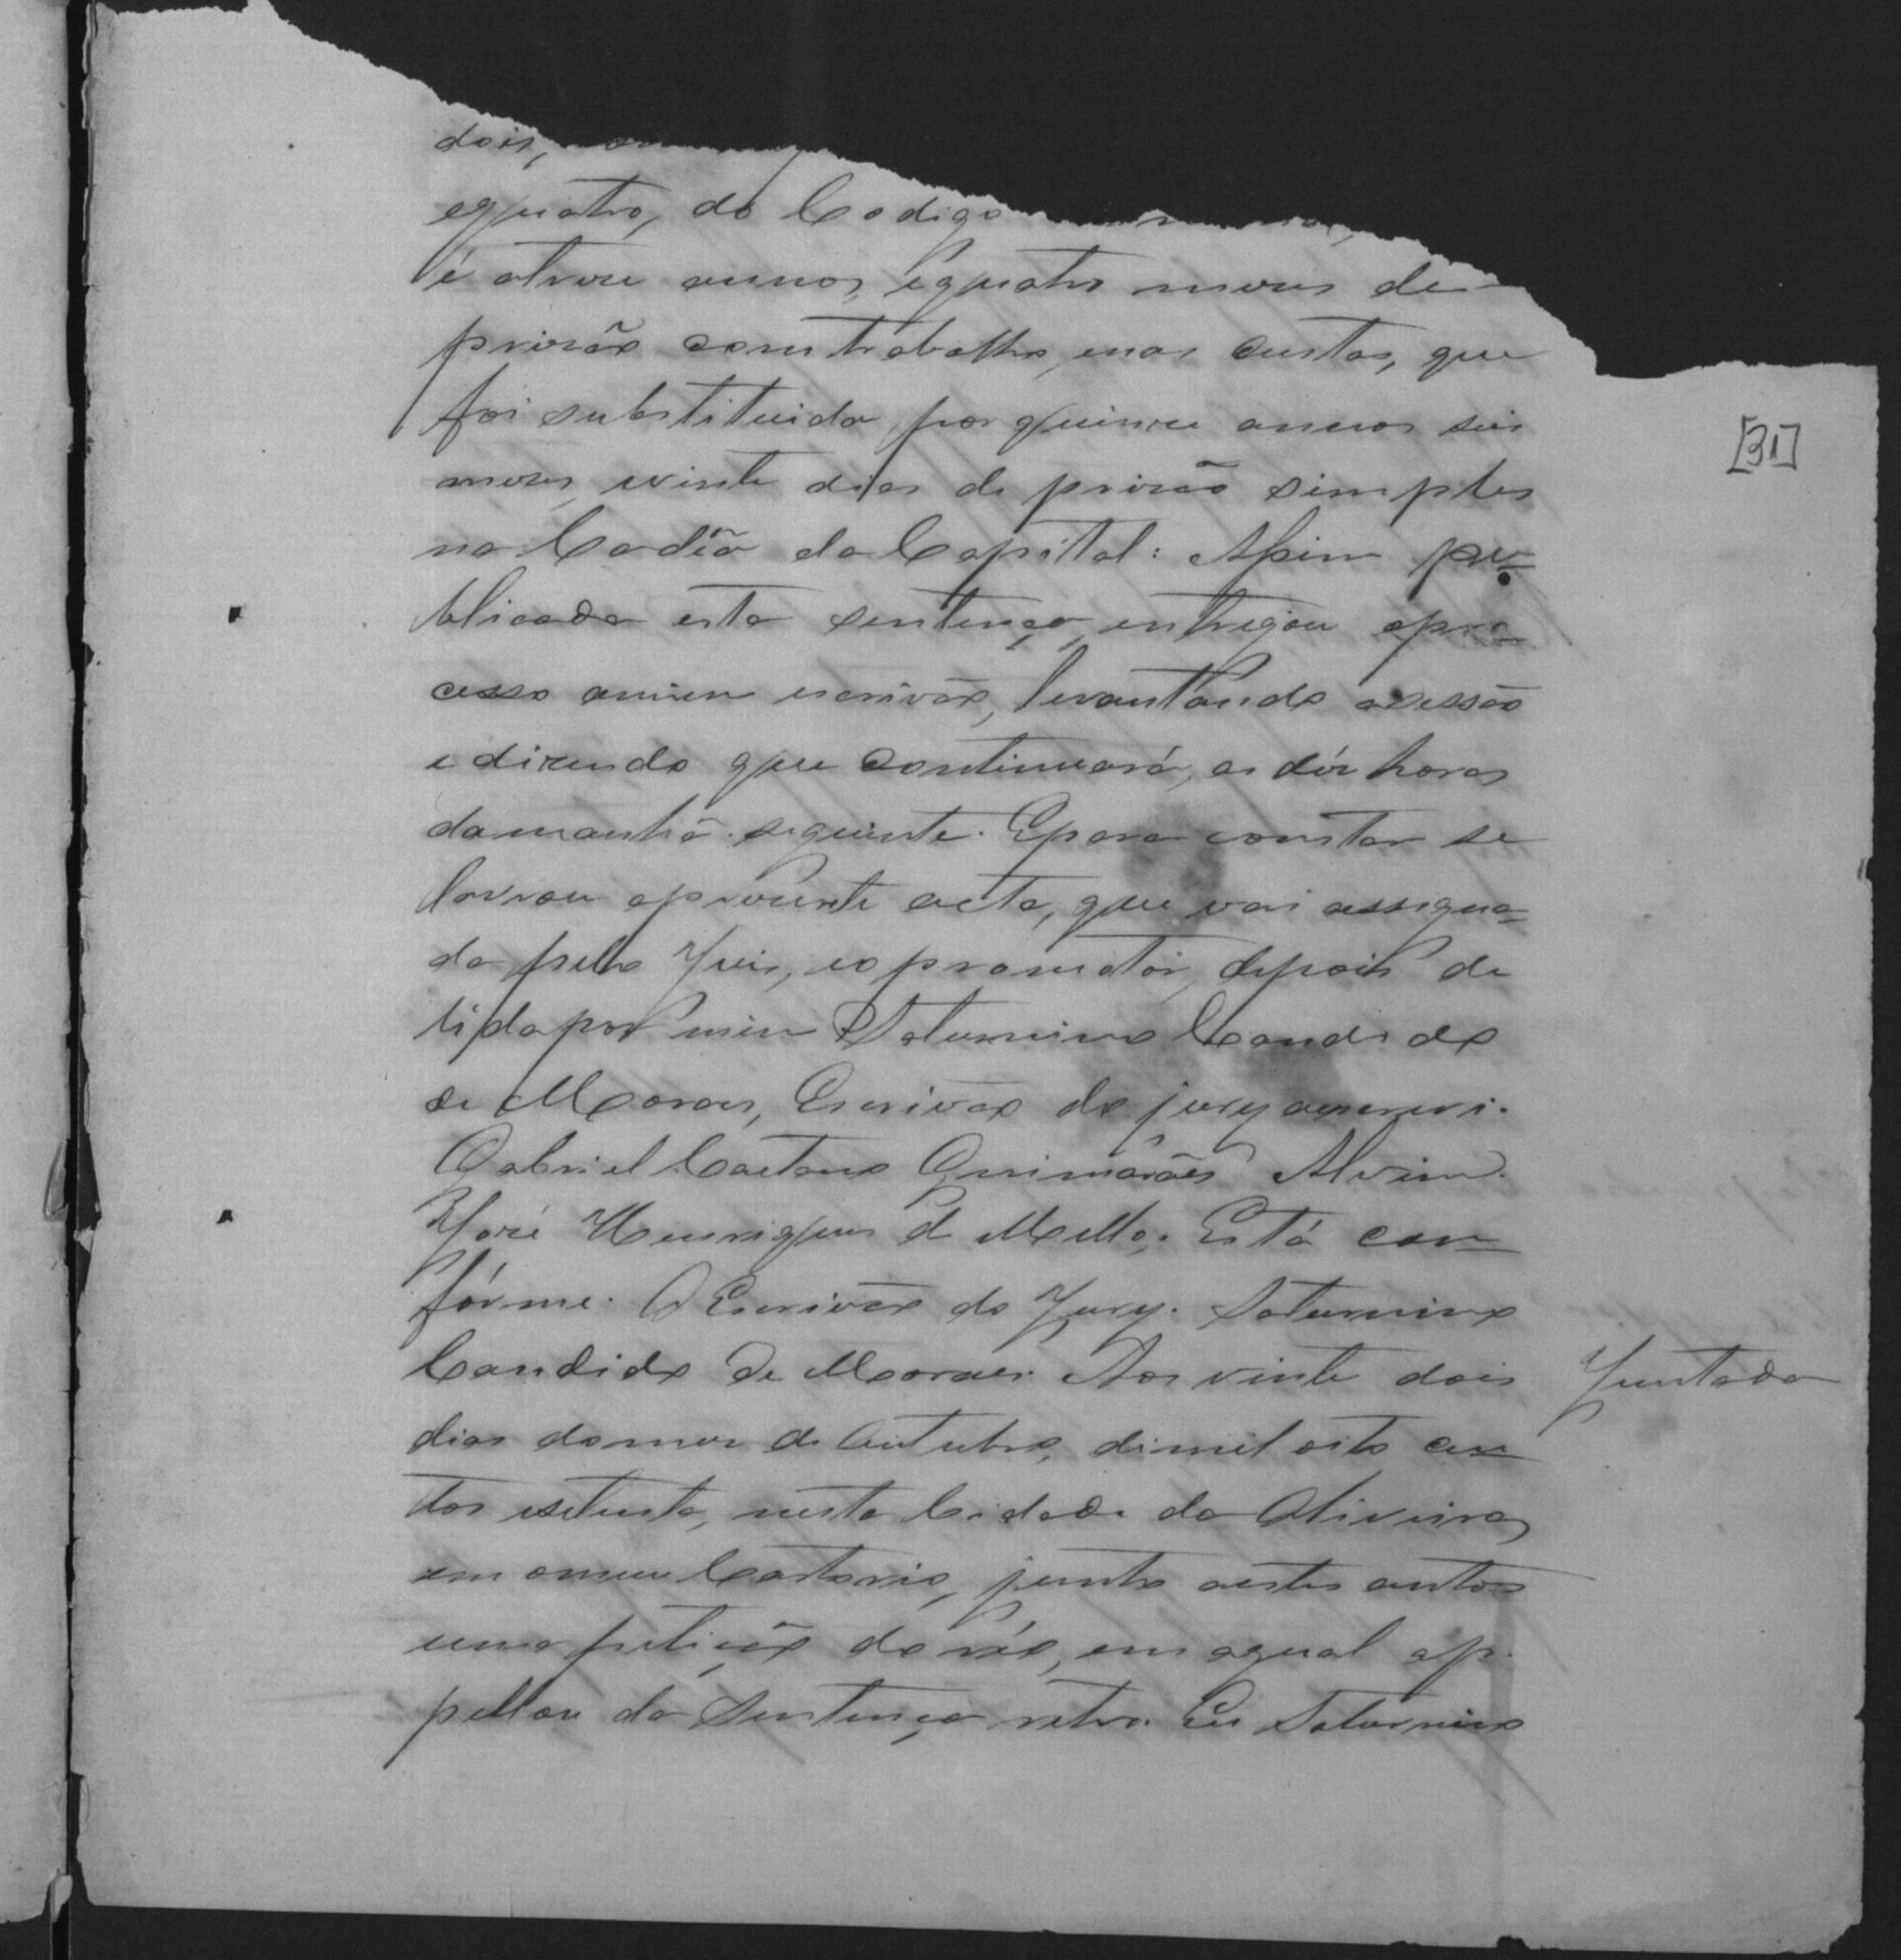 dois,
equatro, do Codigo
é a treze annos, equatro mezes de
prizão com trabalho, enas custas, que
foi substituida por quinze annos seis
mezes, evinte dias de prizão simples
na Cadêa da Capital: Assim pu=
blicada esta sentença, entregou opro=
cesso amim escrivão, levantando asessão
e dizendo que continuará, as déz horas
damanhã seguinte. Epara constar se
lavrou apresente acta, que vai assigna=
da pelo Juiz, eo promotor, depois de
lida por mim Saturnino Candido
de Moraes, Escrivão do jury a escrevi.
Gabriel Caetano Guimarães Alvim.
José Henriques de Mello. Está con=
fórme. O Escrivão do Jury. Saturnino
Candido de Moraes. Aos vinte dois
Juntada
dias domez de Outubro, de mil oito cen=
tos esetenta, nesta Cidade da Oliveira,
em omeu Cartorio, junto aestes autos
uma petição do réo, em aqual ap=
pellou da Sentença retro. Eu Saturnino
[31]